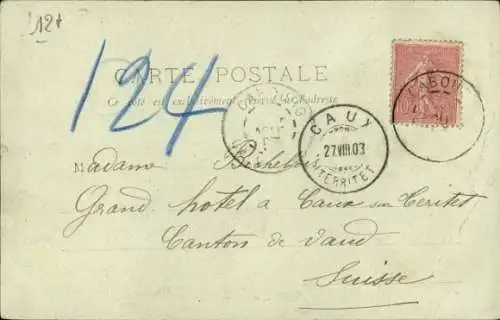 12t
124
CARTE POSTALE
Ce côté est exclusivement réservé à l'adresse
CABOURG
CAUX
27.VIII.03
TERRITET
CABOU
Madame
Grand hotel à Caux sur Territet
Canton de Vaud
Suisse